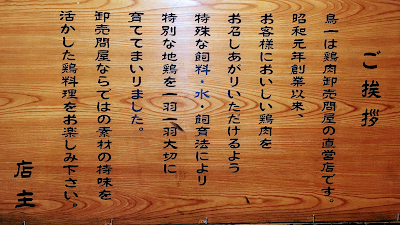 ご挨拶
鳥一は鶏肉卸売問屋の直営店です。
昭和元年創業以来、
お客様においしい鶏肉を
お召しあがりいただけるよう
特殊な飼料・水・飼育法により
特別な地鶏を一羽一羽大切に
育ててまいりました。
卸売問屋ならではの素材の特味を
活かした鶏料理をお楽しみ下さい。
店主